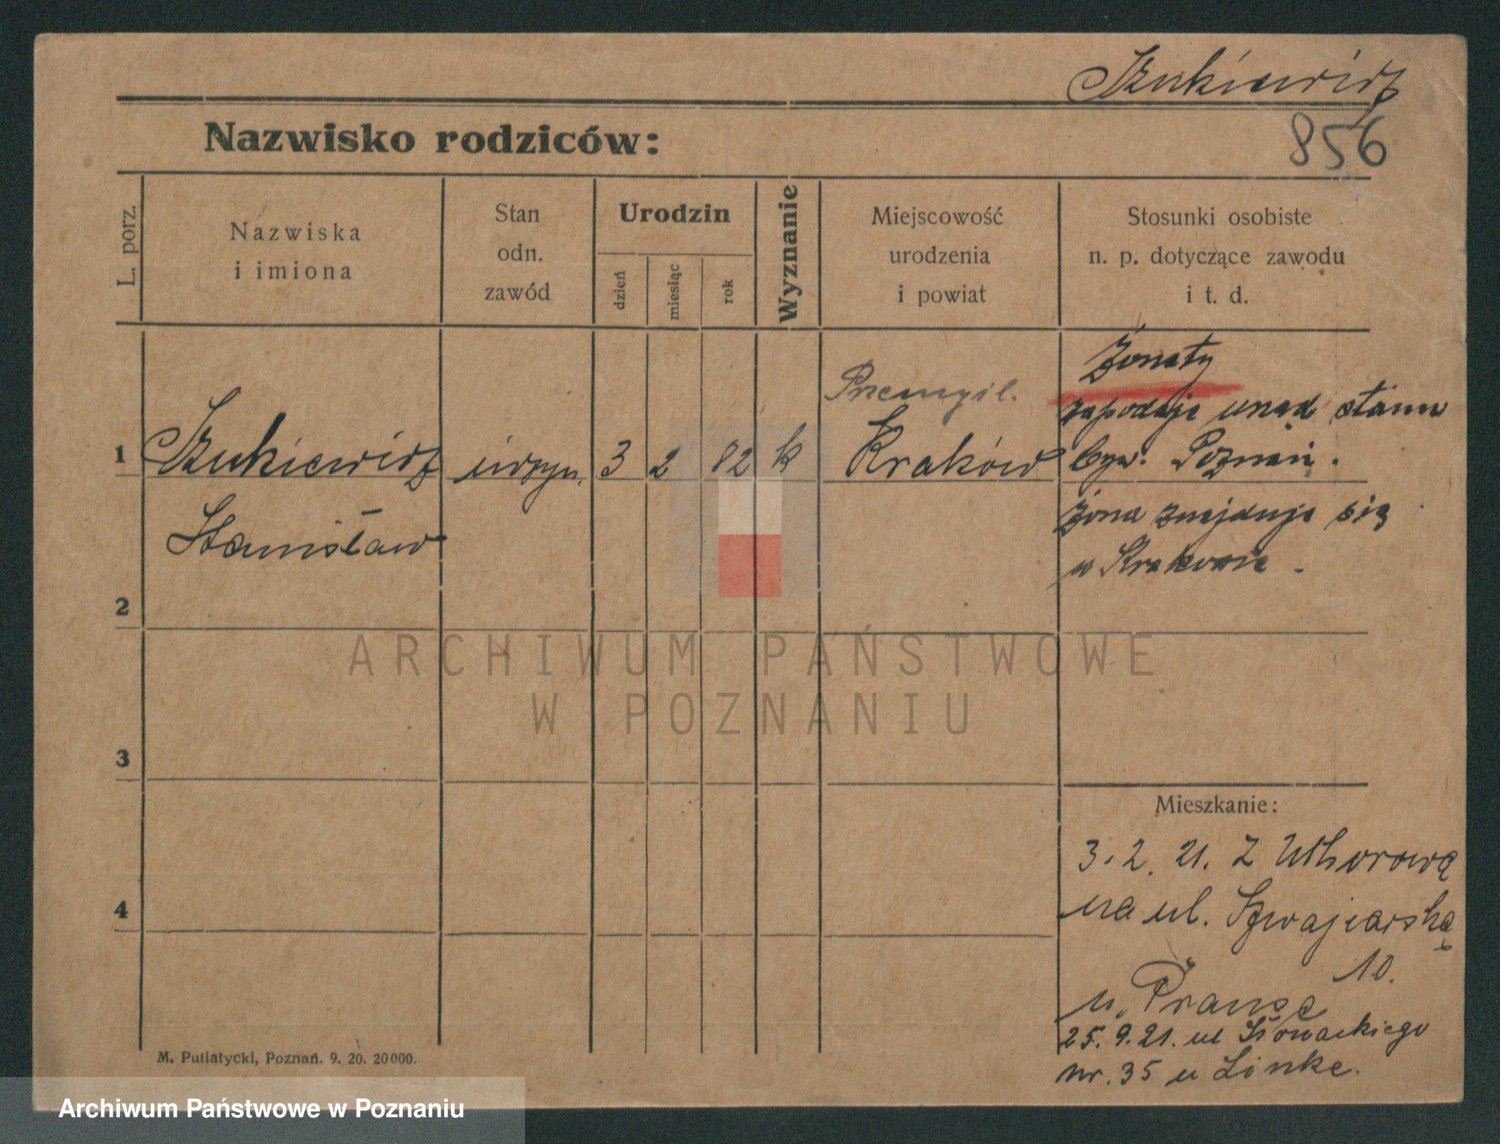 Szukiewicz
856
Nazwisko rodziców:
L. porz.
Nazwiska
i imiona
Stan
odn.
zawód
Urodzin
dzień
miesiąc
rok
Wyznanie
Miejscowość
urodzenia
i powiat
Stosunki osobiste
n. p. dotyczące zawodu
i t. d.
1
Szukiewicz
Stanisław
inżyn.
3
2
82
k
Przemyśl.
Kraków
Żonaty
zapodaje urząd stanu
cyw. Poznań.
Żona znajduje się
w Krakowie.
2
3
4
Mieszkanie:
3.2.21. Z
na ul. Szwajcarską
10.
u.
25.9.21. ul Słowackiego
nr. 35 u Linke.
M. Putiatycki, Poznań. 9. 20. 20000.
ARCHIWUM PAŃSTWOWE
W POZNANIU
Archiwum Państwowe w Poznaniu